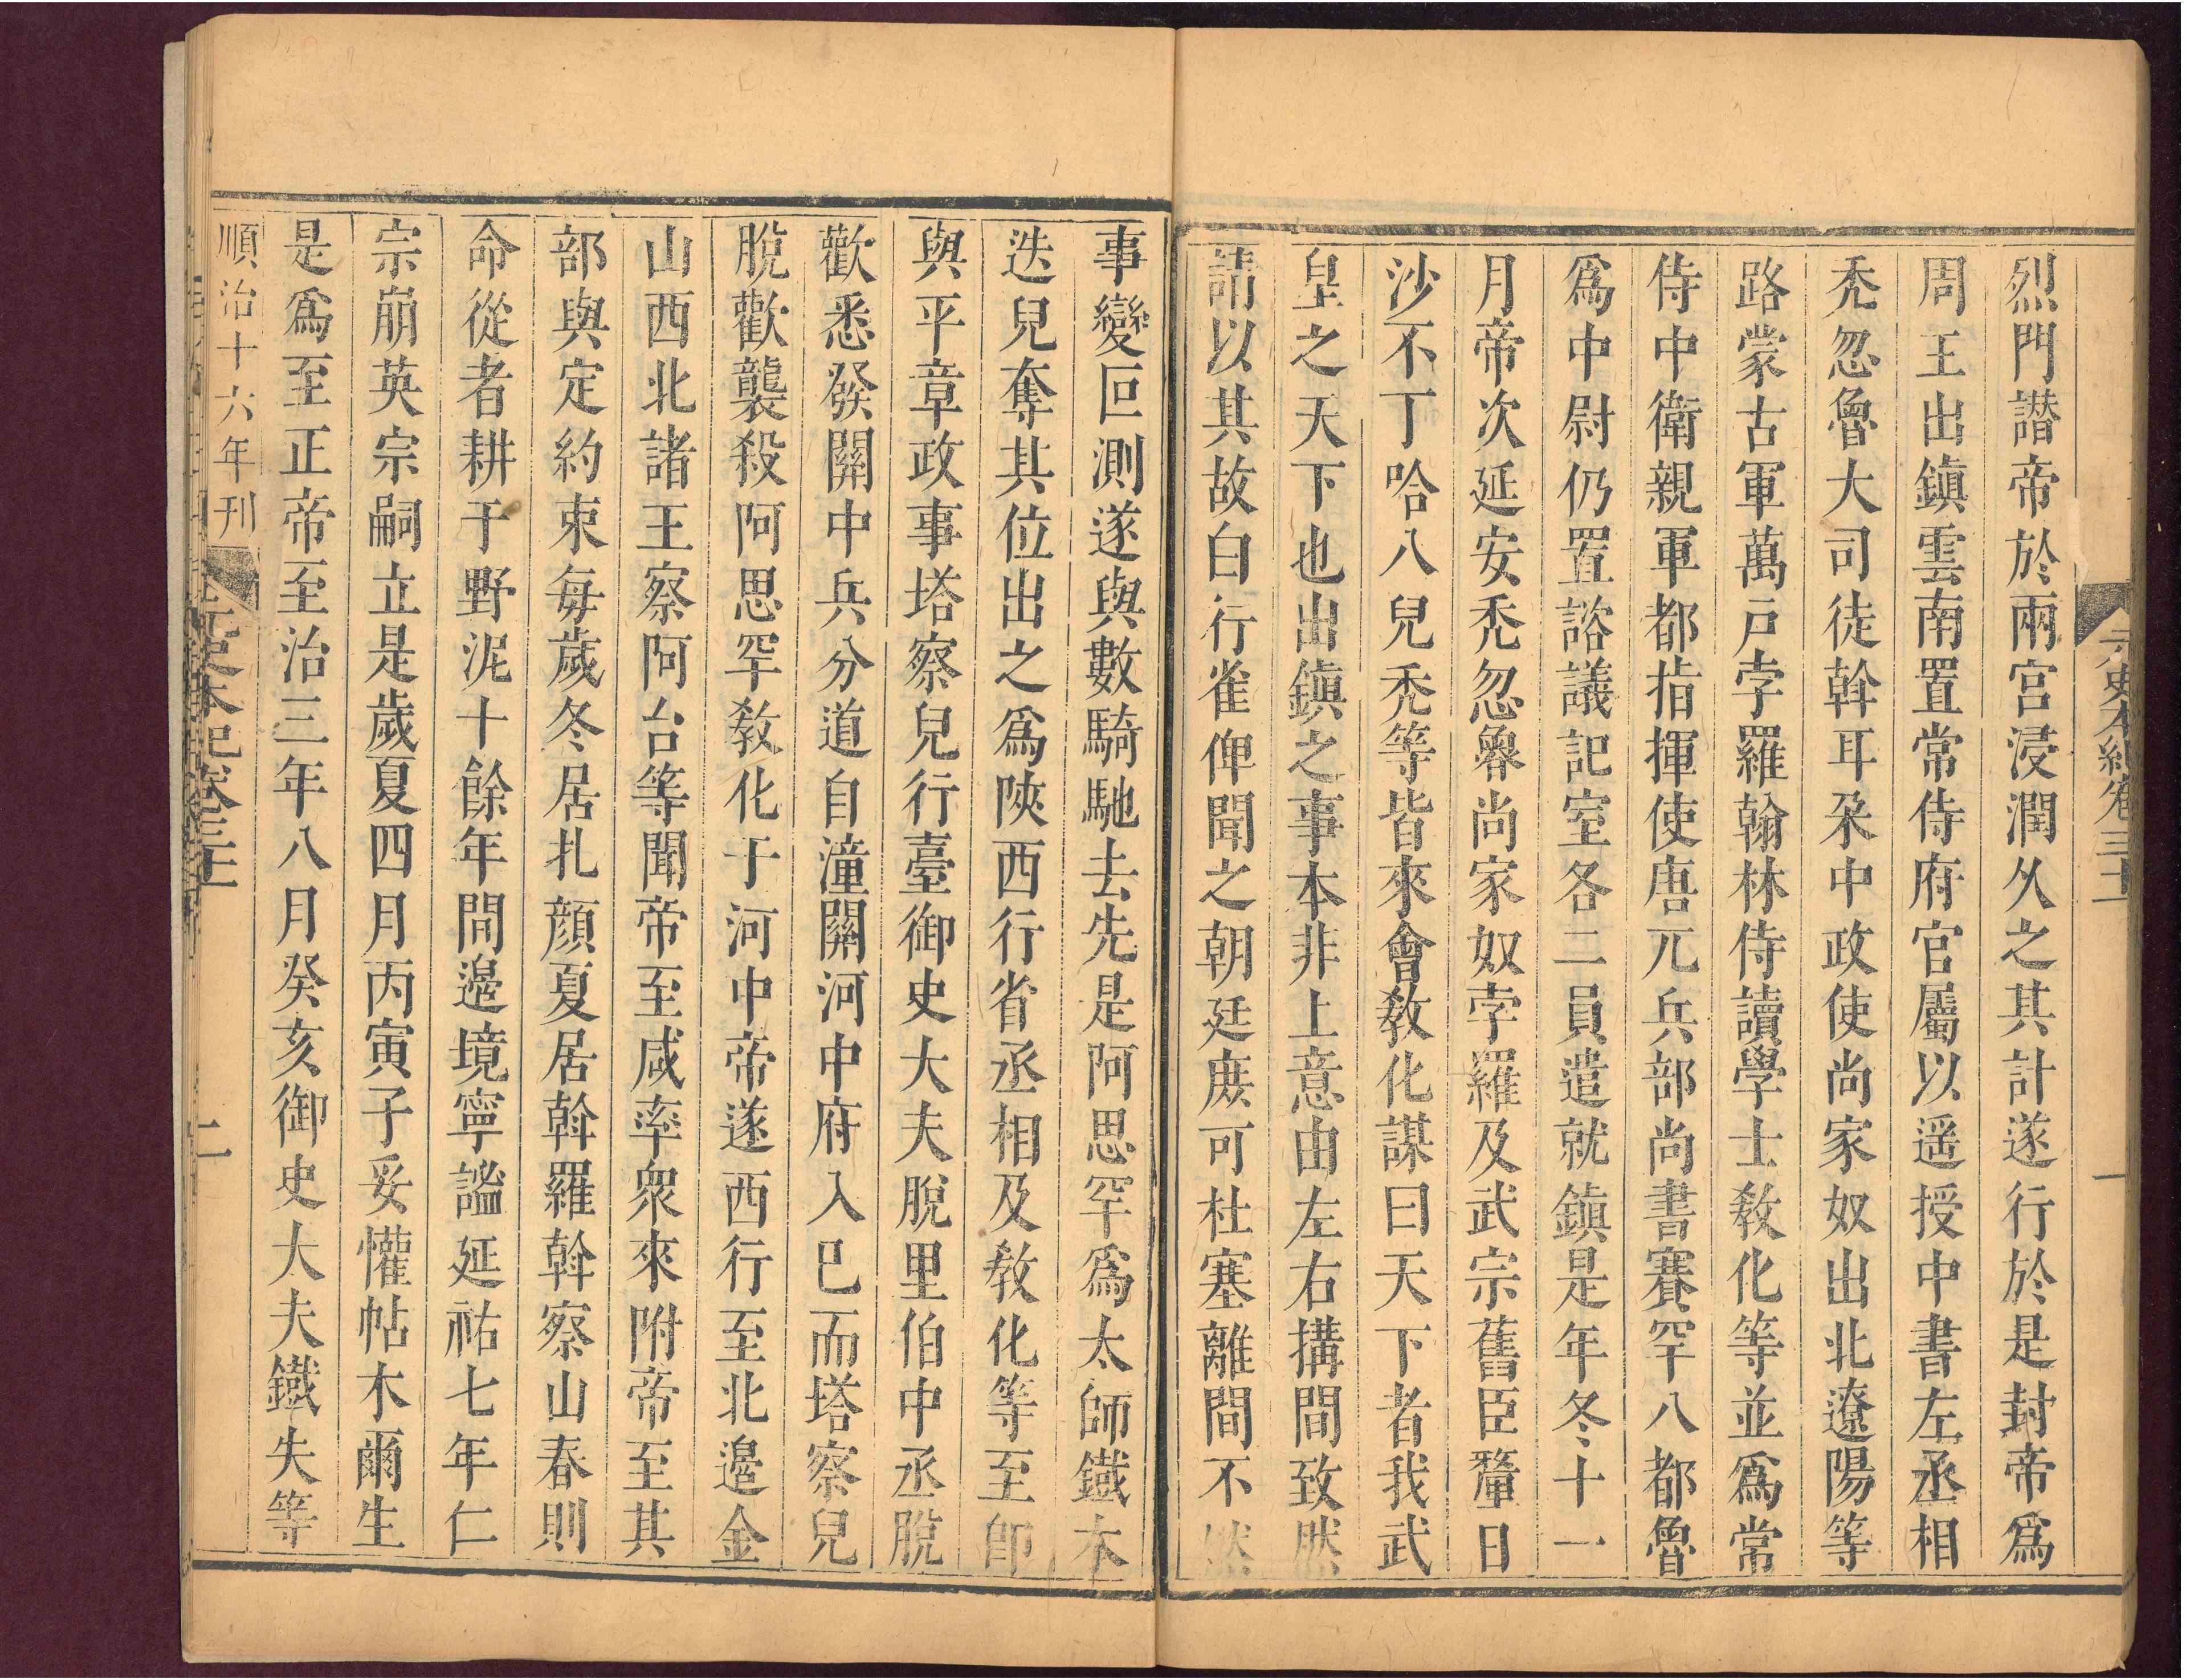 元史本紀卷三十一
一
烈門譛帝於兩宮浸潤久之其計遂行於是封帝爲
周王出鎮雲南置常侍府官屬以遥授中書左丞相
禿忽魯大司徒斡耳朶中政使尚家奴出北遼陽等
路蒙古軍萬戸孛羅翰林侍讀學士敎化等並爲常
侍中衛親軍都指揮使唐兀兵部尚書賽罕八都魯
爲中尉仍置諮議記室各二員遣就鎮是年冬十一
月帝次延安禿忽魯尚家奴孛羅及武宗舊臣釐日
沙不丁哈八兒禿等皆來會敎化謀曰天下者我武
皇之天下也出鎮之事本非上意由左右搆間致然
請以其故白行省俾聞之朝廷庶可杜塞離間不然
事變叵測遂與數騎馳去先是阿思罕爲太師鐵木
迭兒奪其位出之爲陝西行省丞相及敎化等至卽
與平章政事塔察兒行臺御史大夫脫里伯中丞脫
歡悉發關中兵分道自潼關河中府入已而塔察兒
脫歡襲殺阿思罕敎化于河中帝遂西行至北邊金
山西北諸王察阿台等聞帝至咸率衆來附帝至其
部與定約束每歲冬居扎顏夏居斡羅斡察山春則
命從者耕于野泥十餘年間邊境寧謐延祐七年仁
宗崩英宗嗣立是歲夏四月丙寅子妥懽帖木爾生
是爲至正帝至治三年八月癸亥御史大夫鐵失等
順治十六年刊
元史本紀卷三十一
二